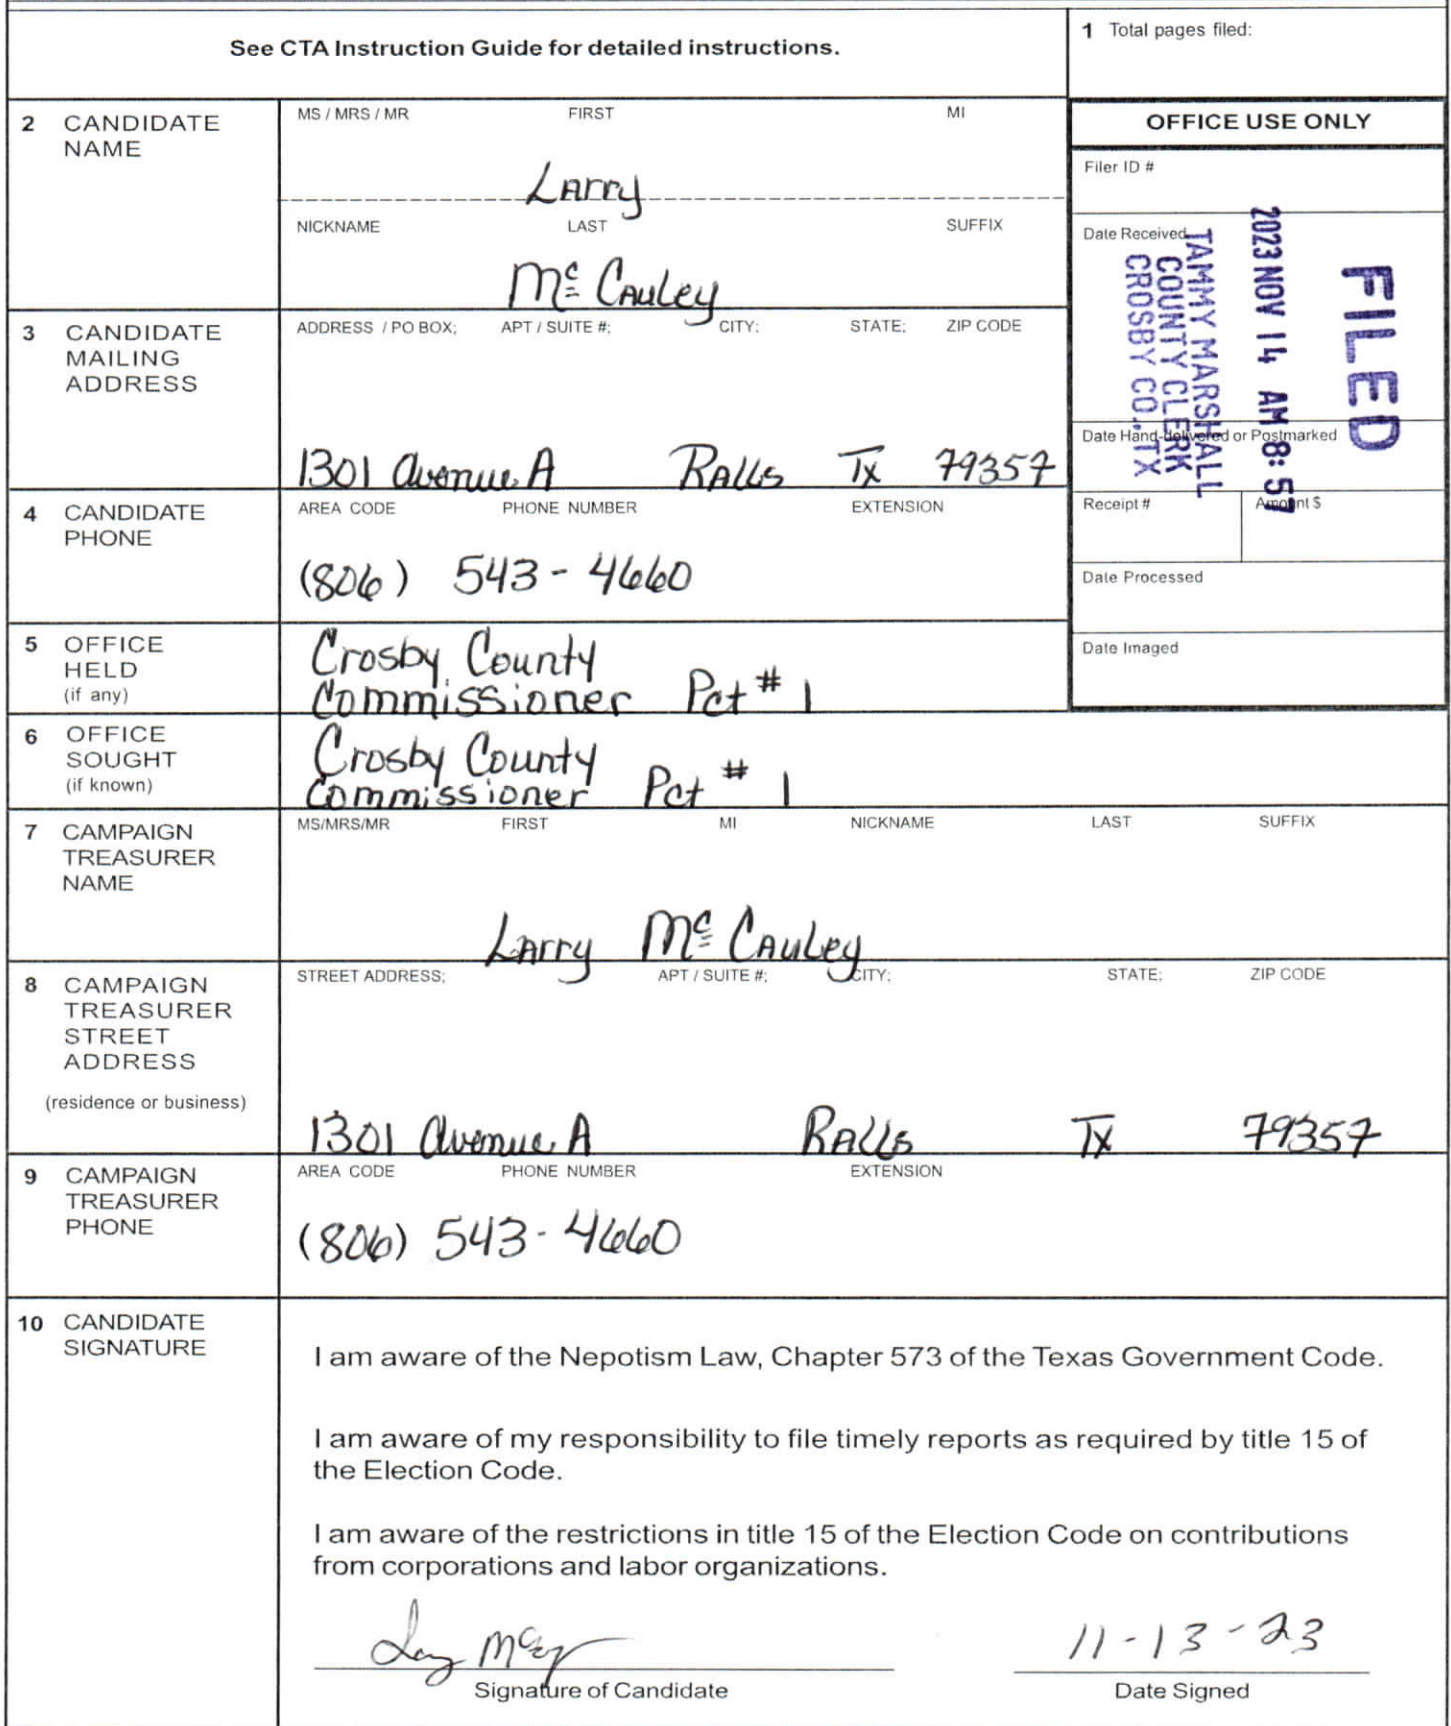 See CTA Instruction Guide for detailed instructions.
1 Total pages filed:
2 CANDIDATE
NAME
MS / MRS / MR FIRST MI
Larry
NICKNAME LAST SUFFIX
McCauley
OFFICE USE ONLY
Filer ID #
Date Received
FILED
2023 NOV 14 AM 8:57
TAMMY MARSHALL
COUNTY CLERK
CROSBY CO. TX
Date Hand-delivered or Postmarked
Receipt # Amount $
Date Processed
Date Imaged
3 CANDIDATE
MAILING
ADDRESS
ADDRESS / PO BOX; APT / SUITE #; CITY; STATE; ZIP CODE
1301 Avenue A Ralls Tx 79357
4 CANDIDATE
PHONE
AREA CODE PHONE NUMBER EXTENSION
(806) 543-4660
5 OFFICE
HELD
(if any)
Crosby County
Commissioner Pct # 1
6 OFFICE
SOUGHT
(if known)
Crosby County
Commissioner Pct # 1
7 CAMPAIGN
TREASURER
NAME
MS/MRS/MR FIRST MI NICKNAME LAST SUFFIX
Larry McCauley
8 CAMPAIGN
TREASURER
STREET
ADDRESS
(residence or business)
STREET ADDRESS; APT / SUITE #; CITY; STATE; ZIP CODE
1301 Avenue A Ralls Tx 79357
9 CAMPAIGN
TREASURER
PHONE
AREA CODE PHONE NUMBER EXTENSION
(806) 543-4660
10 CANDIDATE
SIGNATURE
I am aware of the Nepotism Law, Chapter 573 of the Texas Government Code.
I am aware of my responsibility to file timely reports as required by title 15 of
the Election Code.
I am aware of the restrictions in title 15 of the Election Code on contributions
from corporations and labor organizations.
11-13-23
Signature of Candidate Date Signed